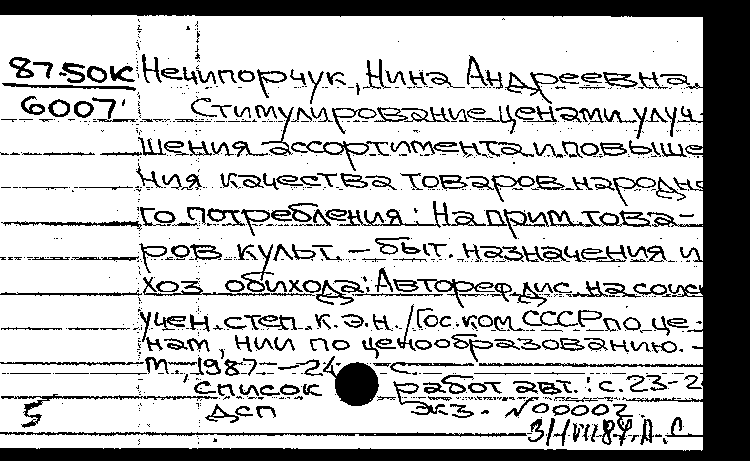 87-50К Нечипорчук, Нина Андреевна.
6007 Стимулирование ценами улуч-
шения ассортимента и повыше
ния качества товаров народно
го потребления: На прим. това-
ров культ. – быт. назначения и
хоз обихода: Автореф. дис. на соиск
учен. степ. к. э. н. / Гос. ком. СССР по це-
нам, НИИ по ценообразованию. –
М. 1987. – 24 с.
Список работ авт.: с. 23-2
5 ДСП Экз. №00002